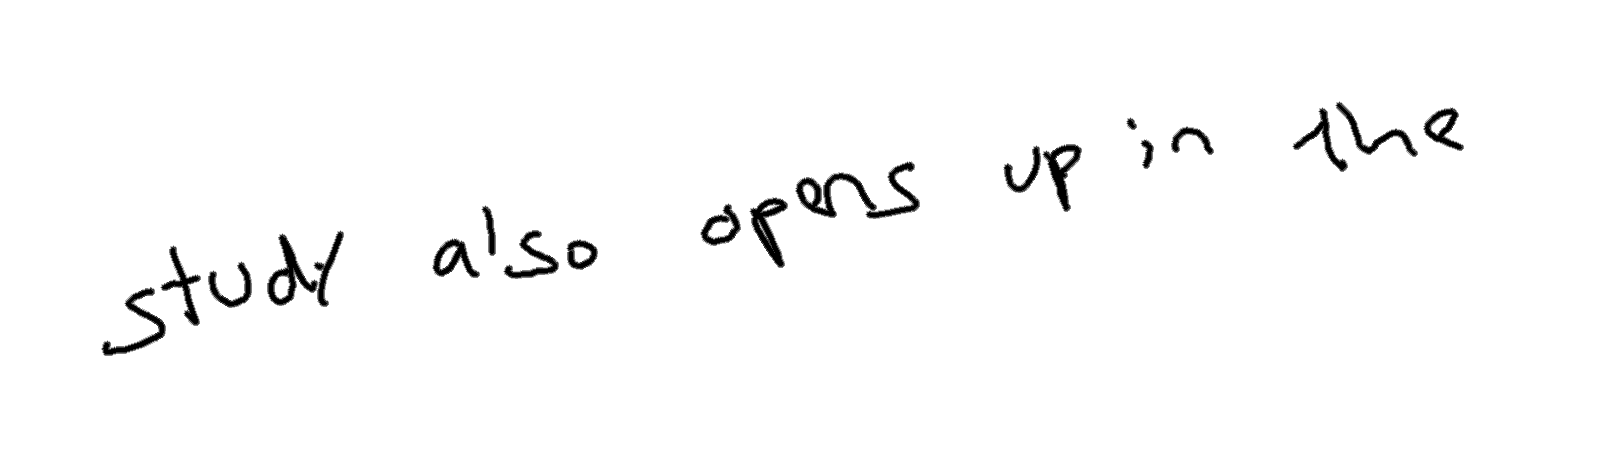 study also opens up in the